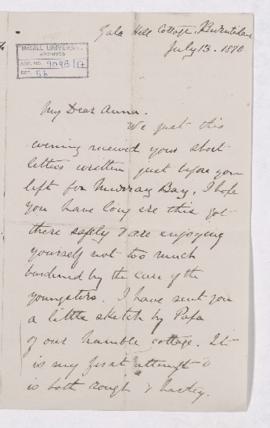 Gala Hill Cottage,
July 13. 1890
McGILL UNIVERSITY
ARCHIVES
ACC. NO.
REF.
My Dear Anna.
We just this
evening received your short
letter written just before you
left for Murray Bay. I hope
you have long ere this got
there safely & are enjoying
yourself not too much
burdened by the care of the
youngsters. I have sent you
a little sketch by Papa
of our humble cottage. It
is my first attempt &
is both rough & hasty.